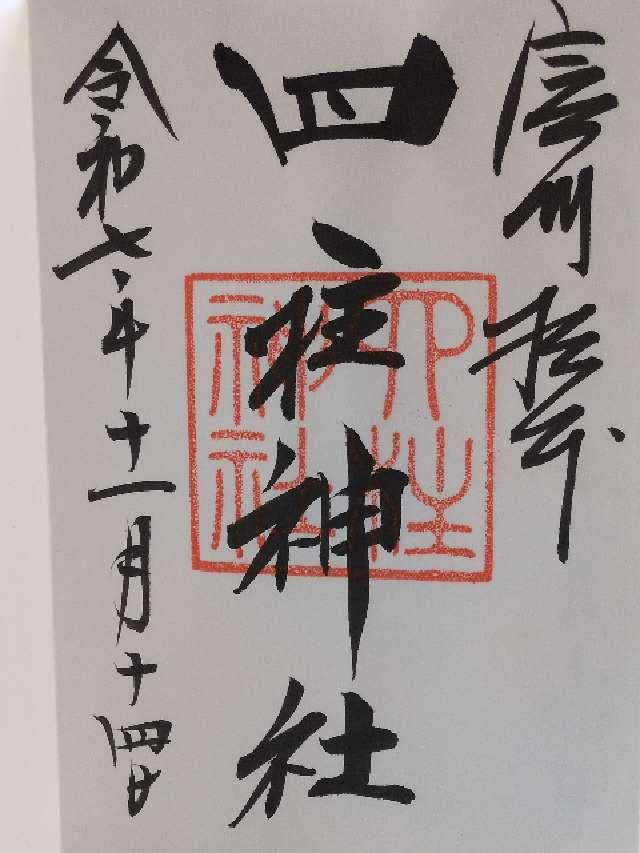 信州松本
四柱神社
四柱神社
令和七年十一月十四日